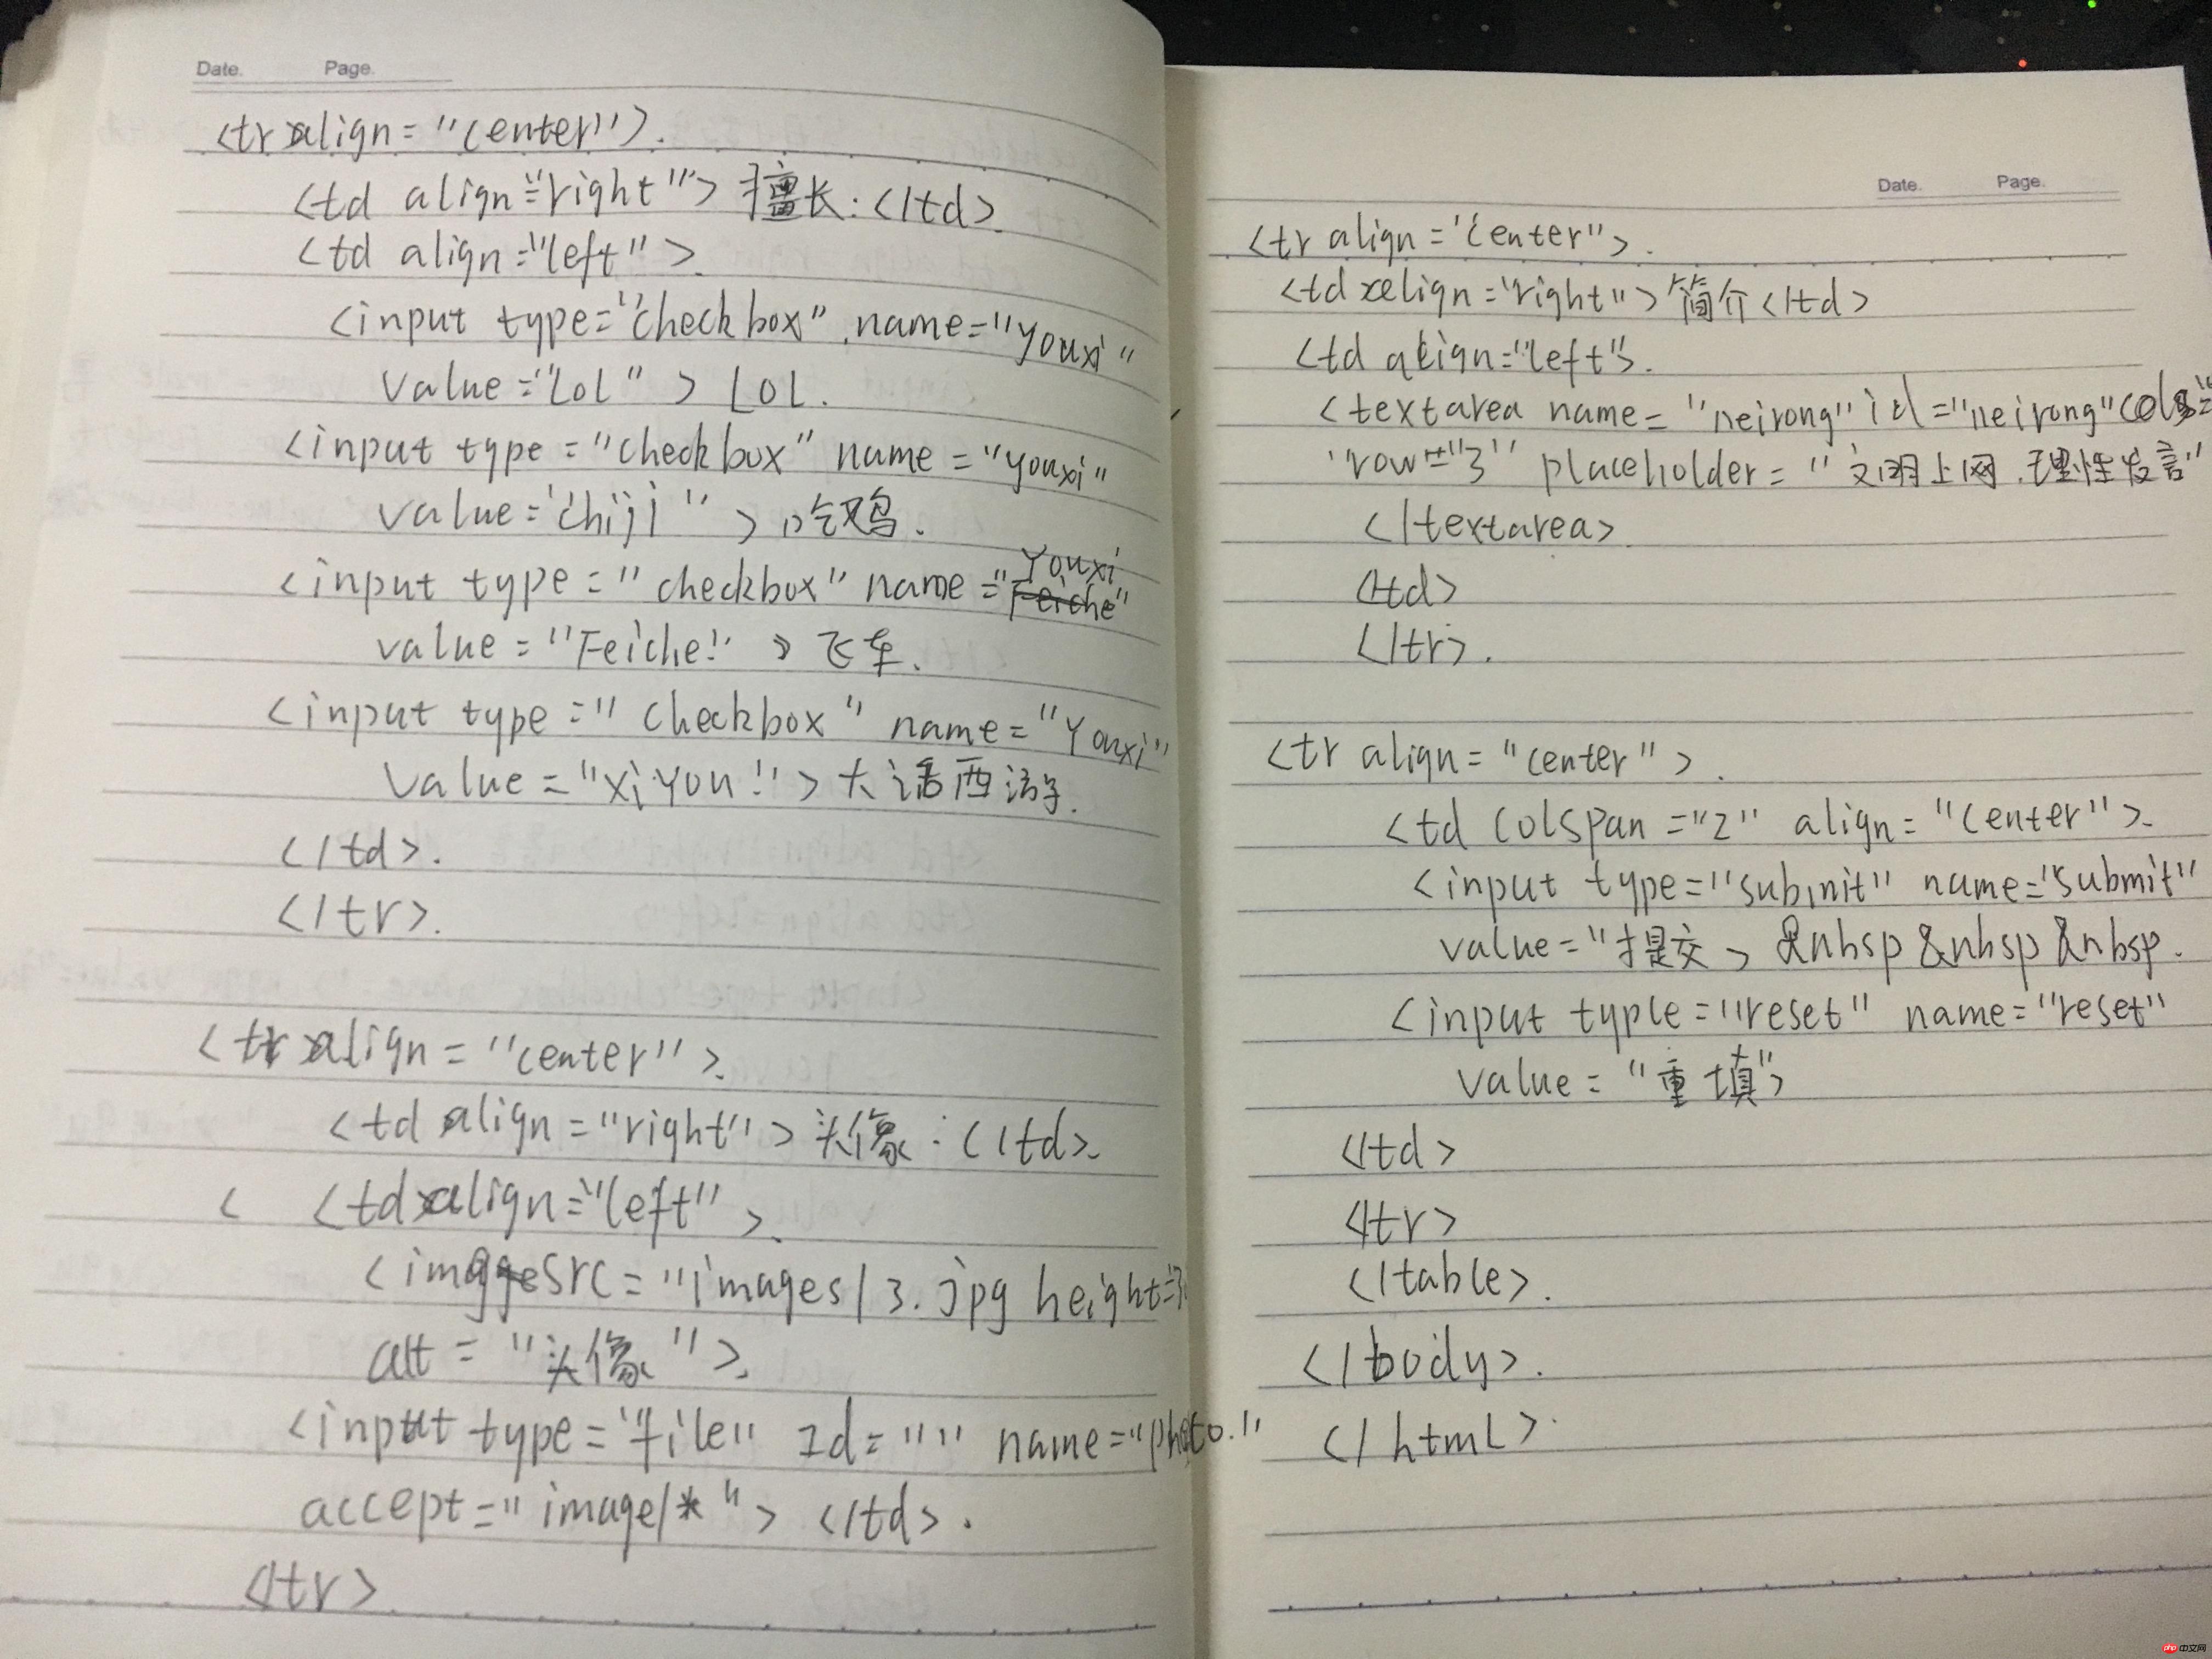 Date. Page.
<tr align="center">.
<td align="right"> 擅长:</td>.
<td align="left">.
<input type="checkbox" name="youxi"
value="LoL" > LOL.
<input type="checkbox" name="youxi"
value="chiji" > 吃鸡.
Youxi
<input type="checkbox" name="Feiche"
value="Feiche" > 飞车.
<input type="checkbox" name="Youxi"
value="xiyou" > 大话西游.
</td>.
</tr>.
<tr align="center">.
<td align="right"> 头像:</td>.
< <td align="left" >.
<img src="images/3.jpg height=
alt="头像">.
<input type="file" Id="" name="photo."
accept="image/*"> </td>.
</tr>
Date. Page.
<tr align="center">.
<td align="right">简介</td>
<td align="left">.
<textarea name="neirong" id="neirong" cols="
row="3" placeholder="文明上网.理性发言"
</textarea>
</td>
</tr>.
<tr align="center">.
<td colspan="2" align="center">.
<input type="submit" name="submit"
value="提交> &nbsp &nbsp &nbsp.
<input type="reset" name="reset"
value="重填">
</td>
</tr>
</table>.
</body>.
</html>
php 中文网